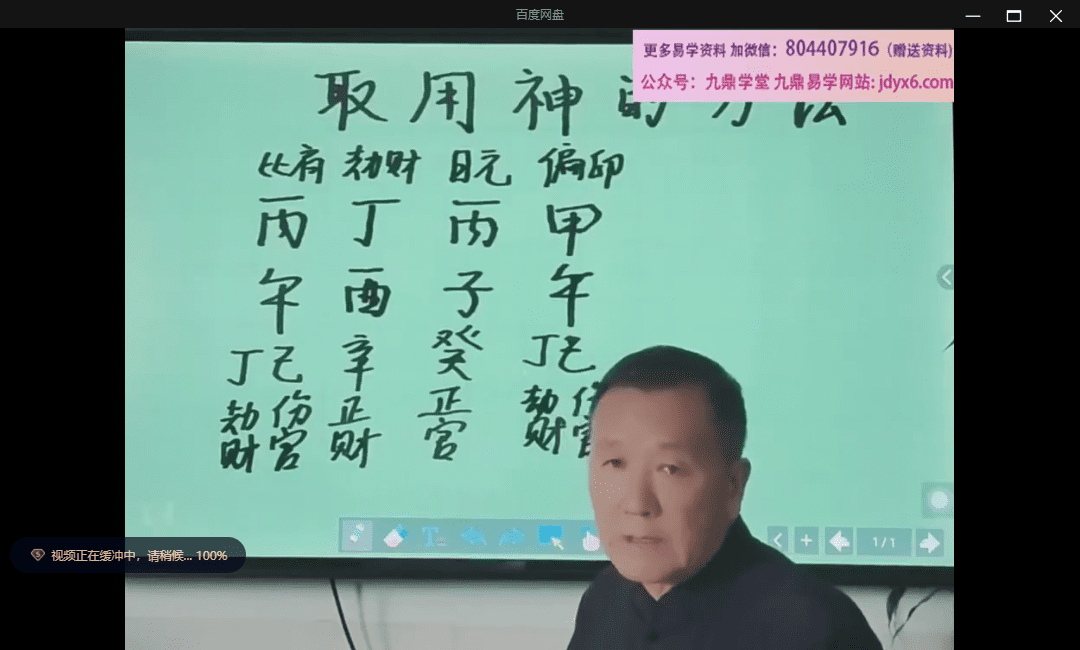 百度网盘
更多易学资料 加微信：804407916（赠送资料）
公众号：九鼎学堂 九鼎易学网站: jdyx6.com
取用神的方法
比肩 劫财 日元 偏印
丙 丁 丙 甲
午 酉 子 午
丁己 辛 癸 丁己
劫财 伤官 正财 正官 劫财 伤官
1/1
视频正在缓冲中，请稍候... 100%